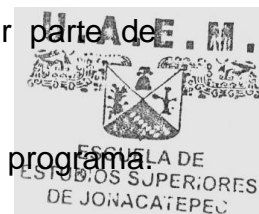 r parte de
U.A.E.M.
programa.
ESCUELA DE
ESTUDIOS SUPERIORES
DE JONACATEPEC